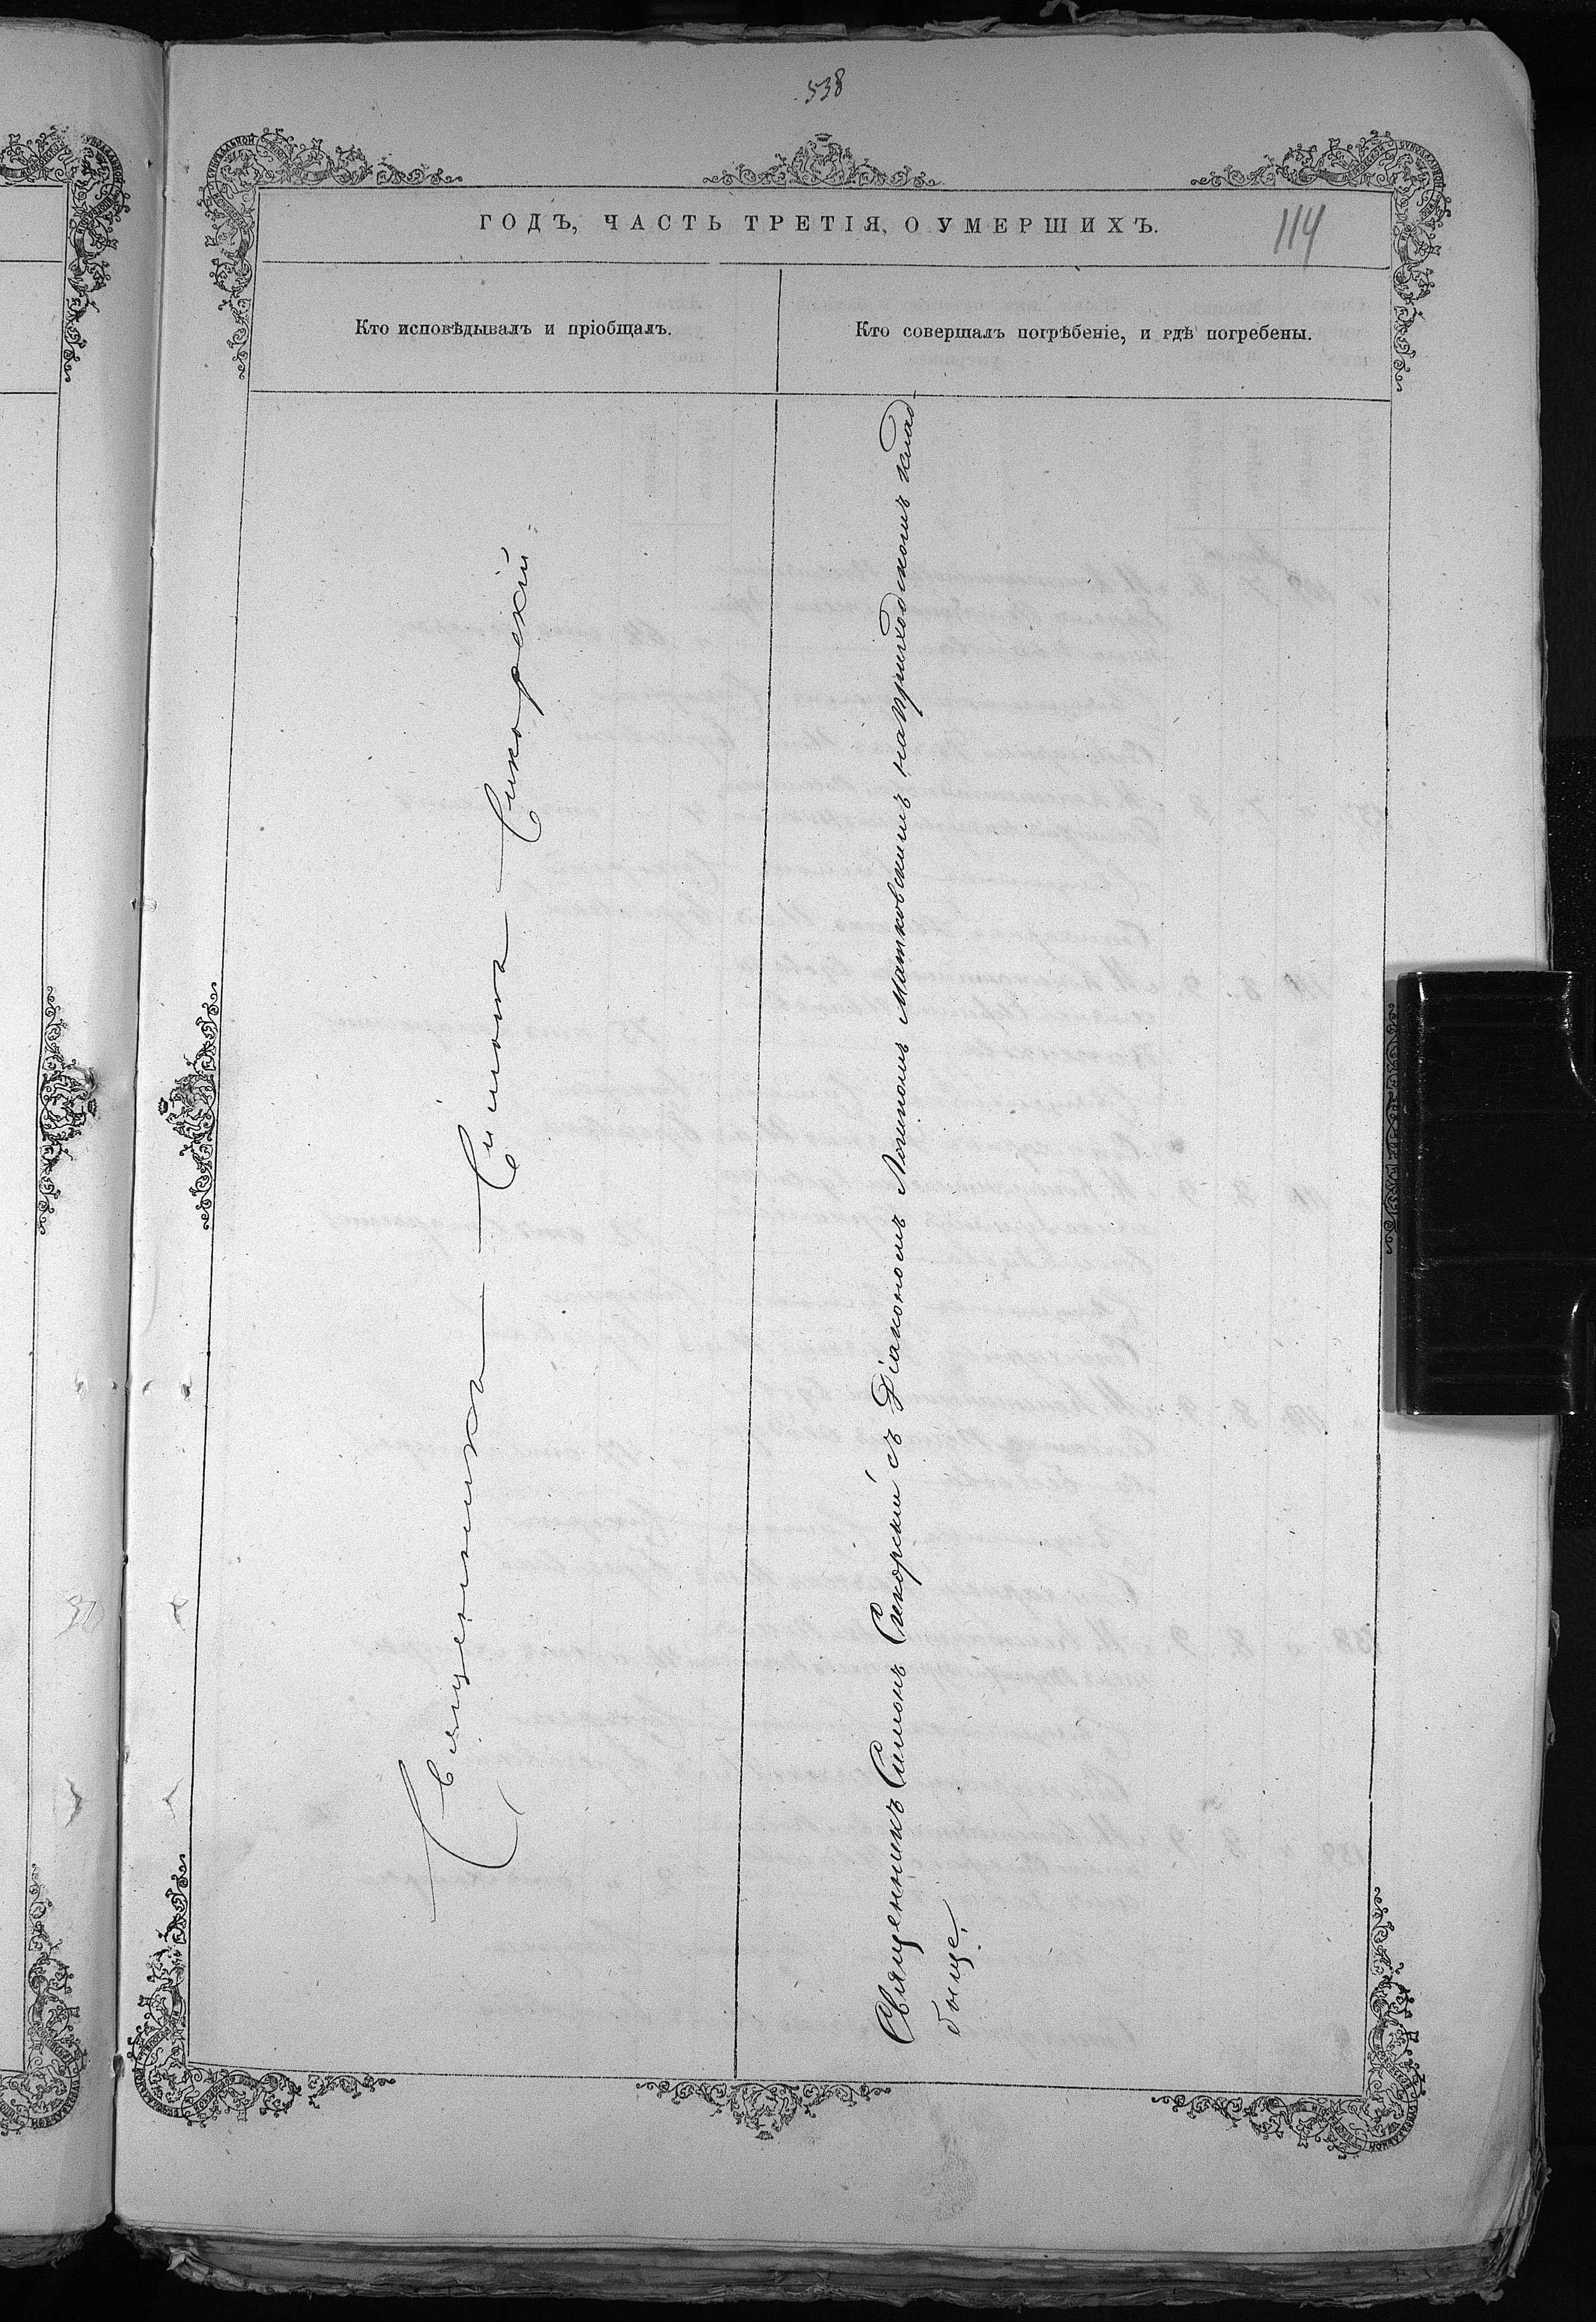 538
ГОДЪ, ЧАСТЬ ТРЕТІЯ, О УМЕРШИХЪ.
114
Кто исповѣдывалъ и пріобщалъ.
Кто совершалъ погрѣбеніе, и гдѣ погребены.
Священникъ — Симонъ — Сикорскій
Священникъ Симонъ Сикорскій съ Діакономъ Логиномъ Матковскимъ на приходскомъ клад-
бище.